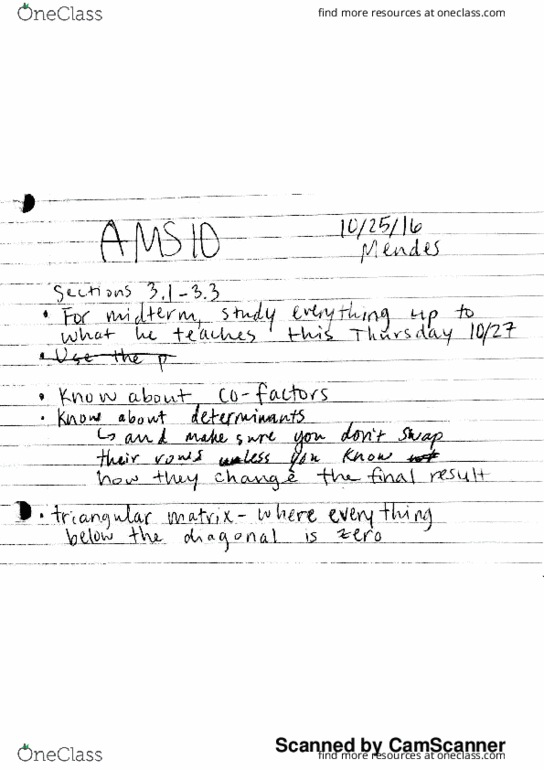 OneClass
find more resources at oneclass.com
AMS10
10/25/16
Mendes
Sections 3.1-3.3
• For midterm, study everything up to
what he teaches this Thursday 10/27
• Use the p
• Know about co-factors
• Know about determinants
↳ and make sure you don't swap
their rows unless you know
how they change the final result
• triangular matrix - where everything
below the diagonal is zero
Scanned by CamScanner
OneClass
find more resources at oneclass.com